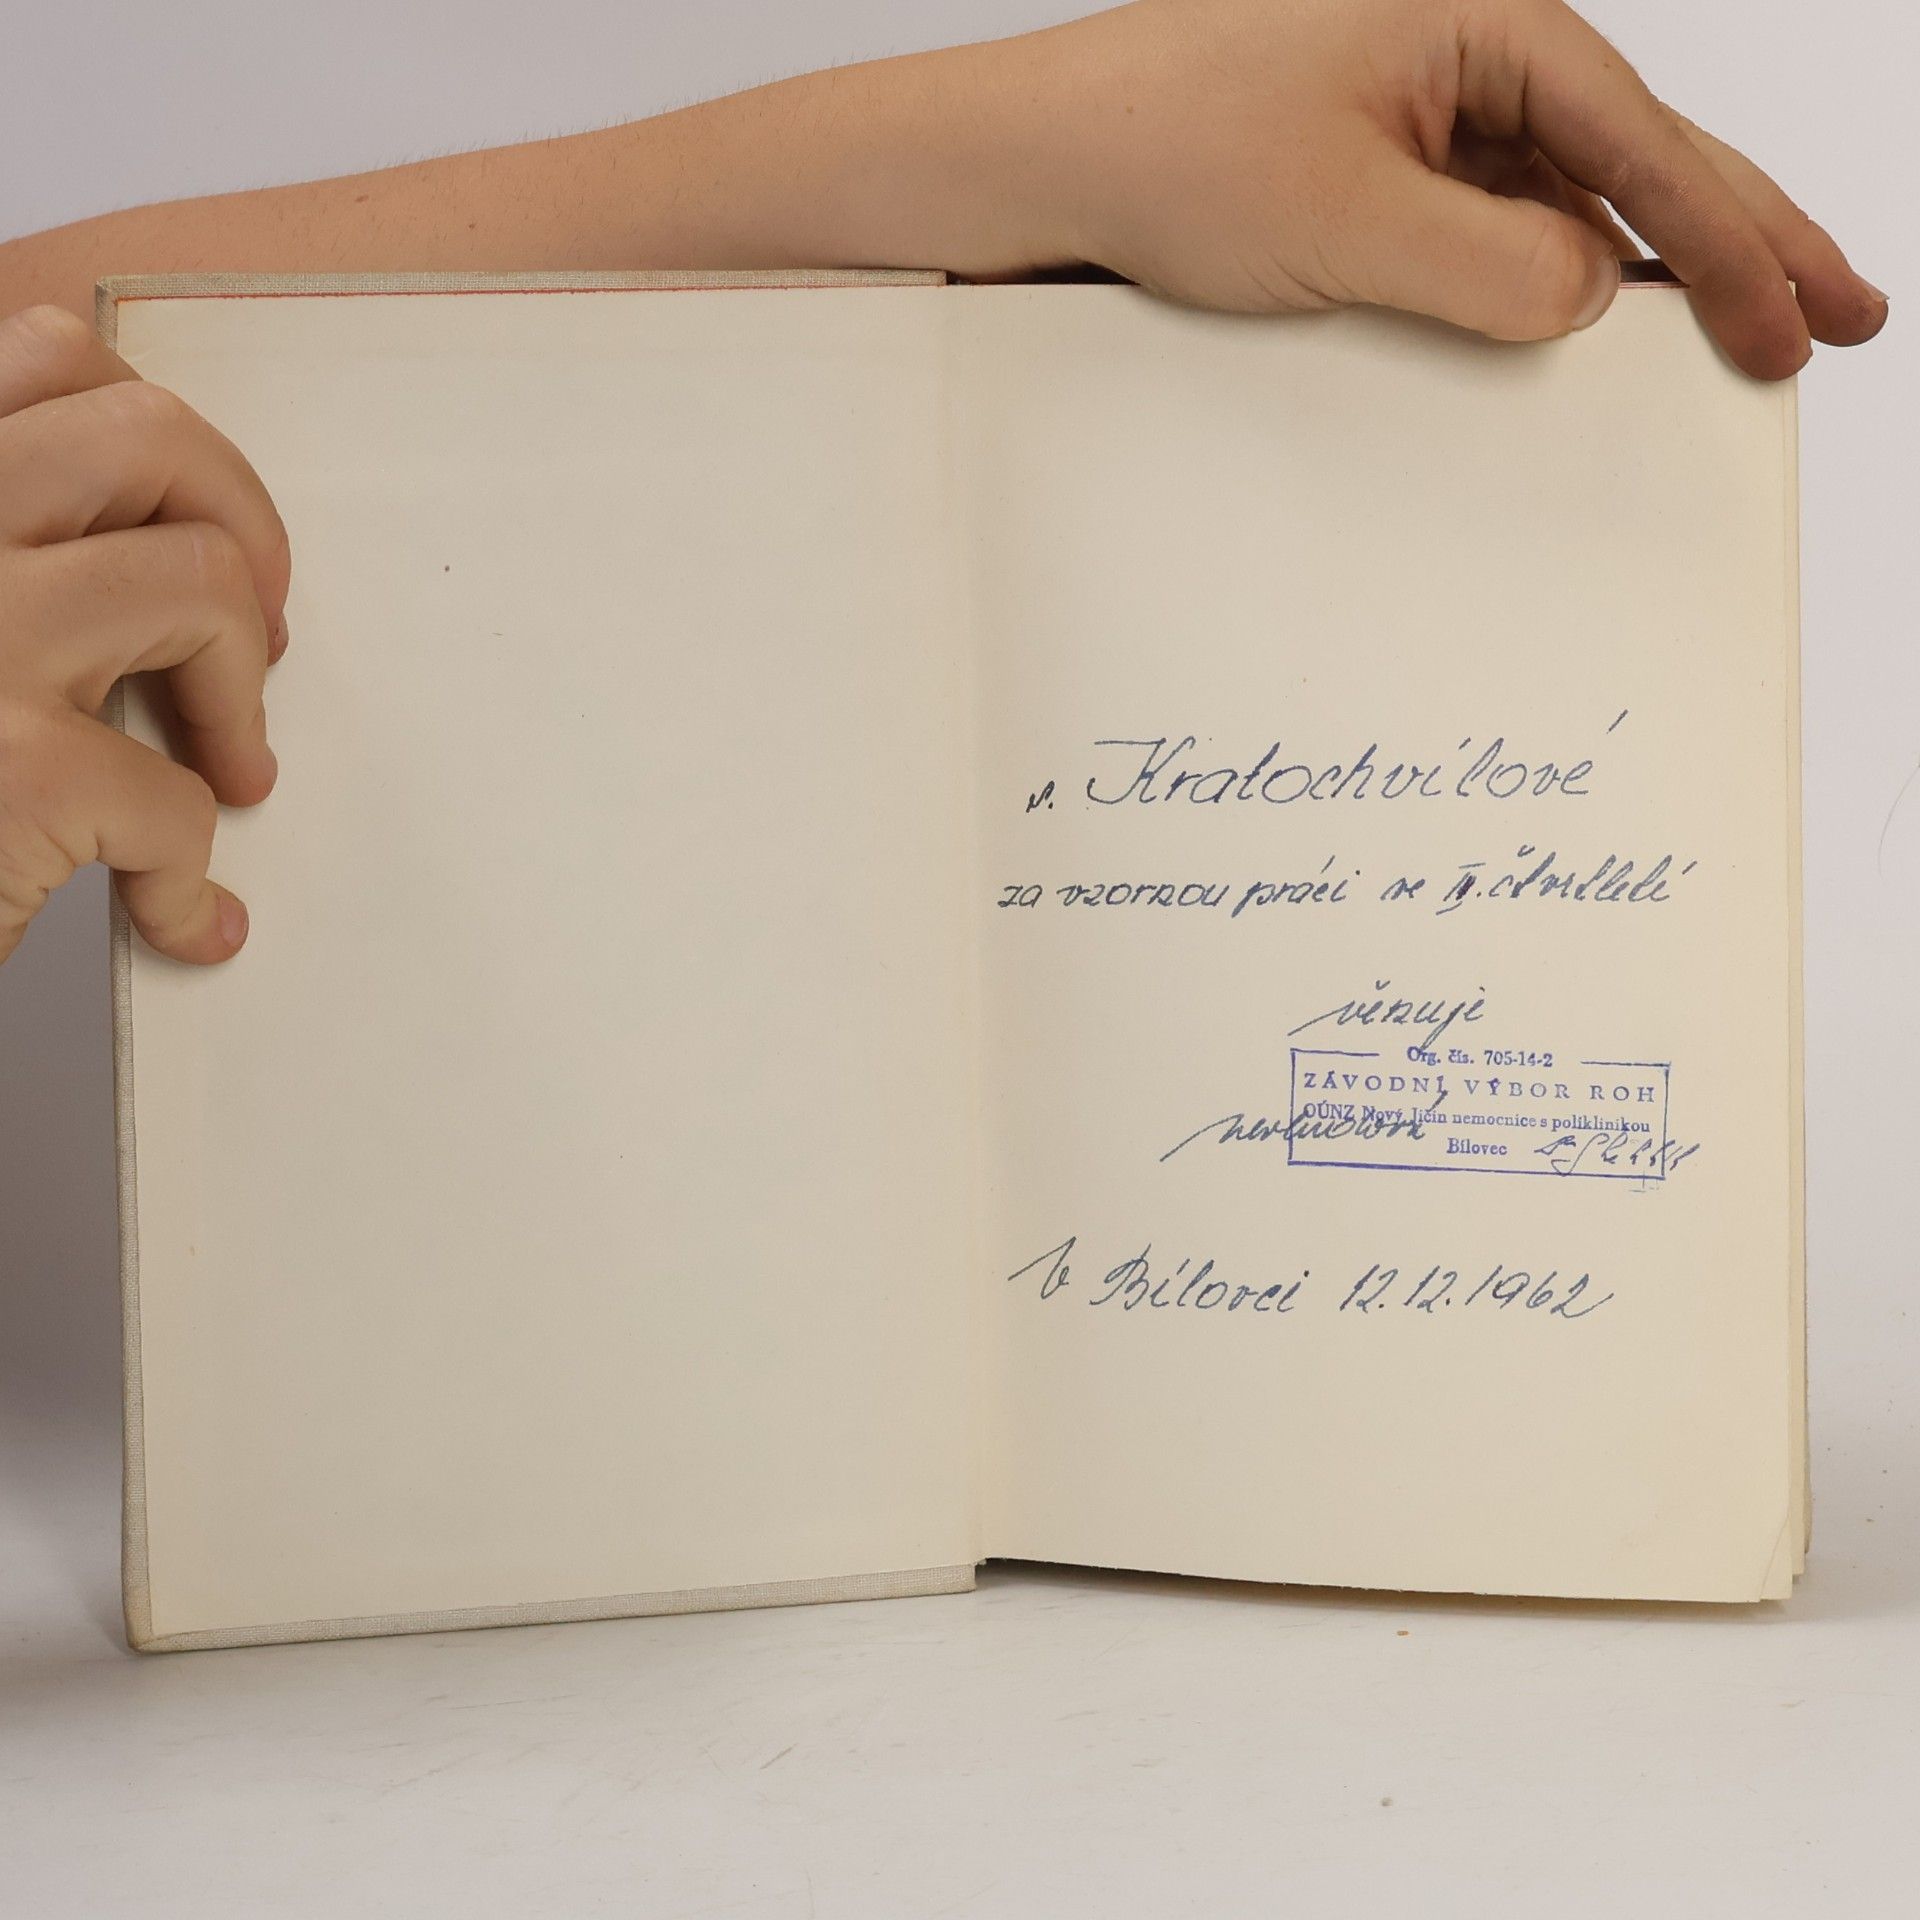 s. Kratochvílové
za vzornou práci ve II. čtvrtletí
věnuje
Org. čís. 705-14-2
ZÁVODNÍ VÝBOR ROH
OÚNZ Nový Jičín nemocnice s poliklinikou
Bílovec
V Bílovci 12.12.1962